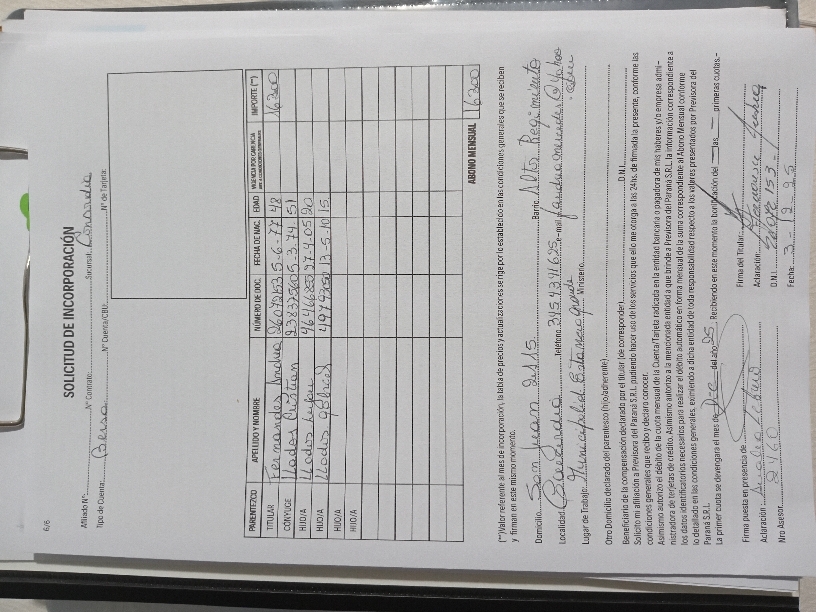 6/6
SOLICITUD DE INCORPORACIÓN
Afiliado Nº: Nº Contrato: Sucursal: Concordia
Tipo de Cuenta: Bersa Nº Cuenta/CBU: Nº de Tarjeta:
PARENTEZCO APELLIDO Y NOMBRE NÚMERO DE DOC. FECHA DE NAC. EDAD VIGENCIA POR CARENCIA IMPORTE (**)
TITULAR Fernandes Andrea 26072153 5-6-77 48 16300
CÓNYUGE Llados Cristian 5-3-74 51
HIJO/A Llados 27-4-05 20
HIJO/A Llados 13-5-10 15
HIJO/A
HIJO/A
ABONO MENSUAL 16300
(**)Valor referente al mes de incorporación, la tabla de precios y actualizaciones se rige por lo establecido en las condiciones generales que se reciben
y firman en este mismo momento.
Domicilio: San Juan 2515 Barrio: Altos Regimiento
Localidad: Concordia Teléfono: 3454341625 e-mail:
Lugar de Trabajo: Municipalidad Estancia Grande Ministerio:
Otro Domicilio declarado del parentesco (h/o/adherente)
Beneficiario de la compensación declarado por el titular (de corresponder) D.N.I.
Solicito mi afiliación a Previsora del Paraná S.R.L. pudiendo hacer uso de los servicios que ello me otorga a las 24hs. de firmada la presente, conforme las
condiciones generales que recibo y declaro conocer.
Asimismo autorizo el débito de la cuota mensual de la Cuenta/Tarjeta radicada en la entidad bancaria o pagadora de mis haberes y/o empresa admi-
nistradora de tarjetas de crédito. Asimismo autorizo a la mencionada entidad a que brinde a Previsora del Paraná S.R.L. la información correspondiente a
los datos identificatorios necesarios para realizar el débito automático en forma mensual de la suma correspondiente al Abono Mensual conforme
lo detallado en las condiciones generales, eximiendo a dicha entidad de toda responsabilidad respecto a los valores presentados por Previsora del
Paraná S.R.L.
La primer cuota se devengara el mes de Dic del año 25. Recibiendo en este momento la bonificación del — las — primeras cuotas.-
Firma puesta en presencia de Firma del Titular:
Aclaración Aclaración:
Nro Asesor: 2460 D.N.I.
Fecha: 3-12-25